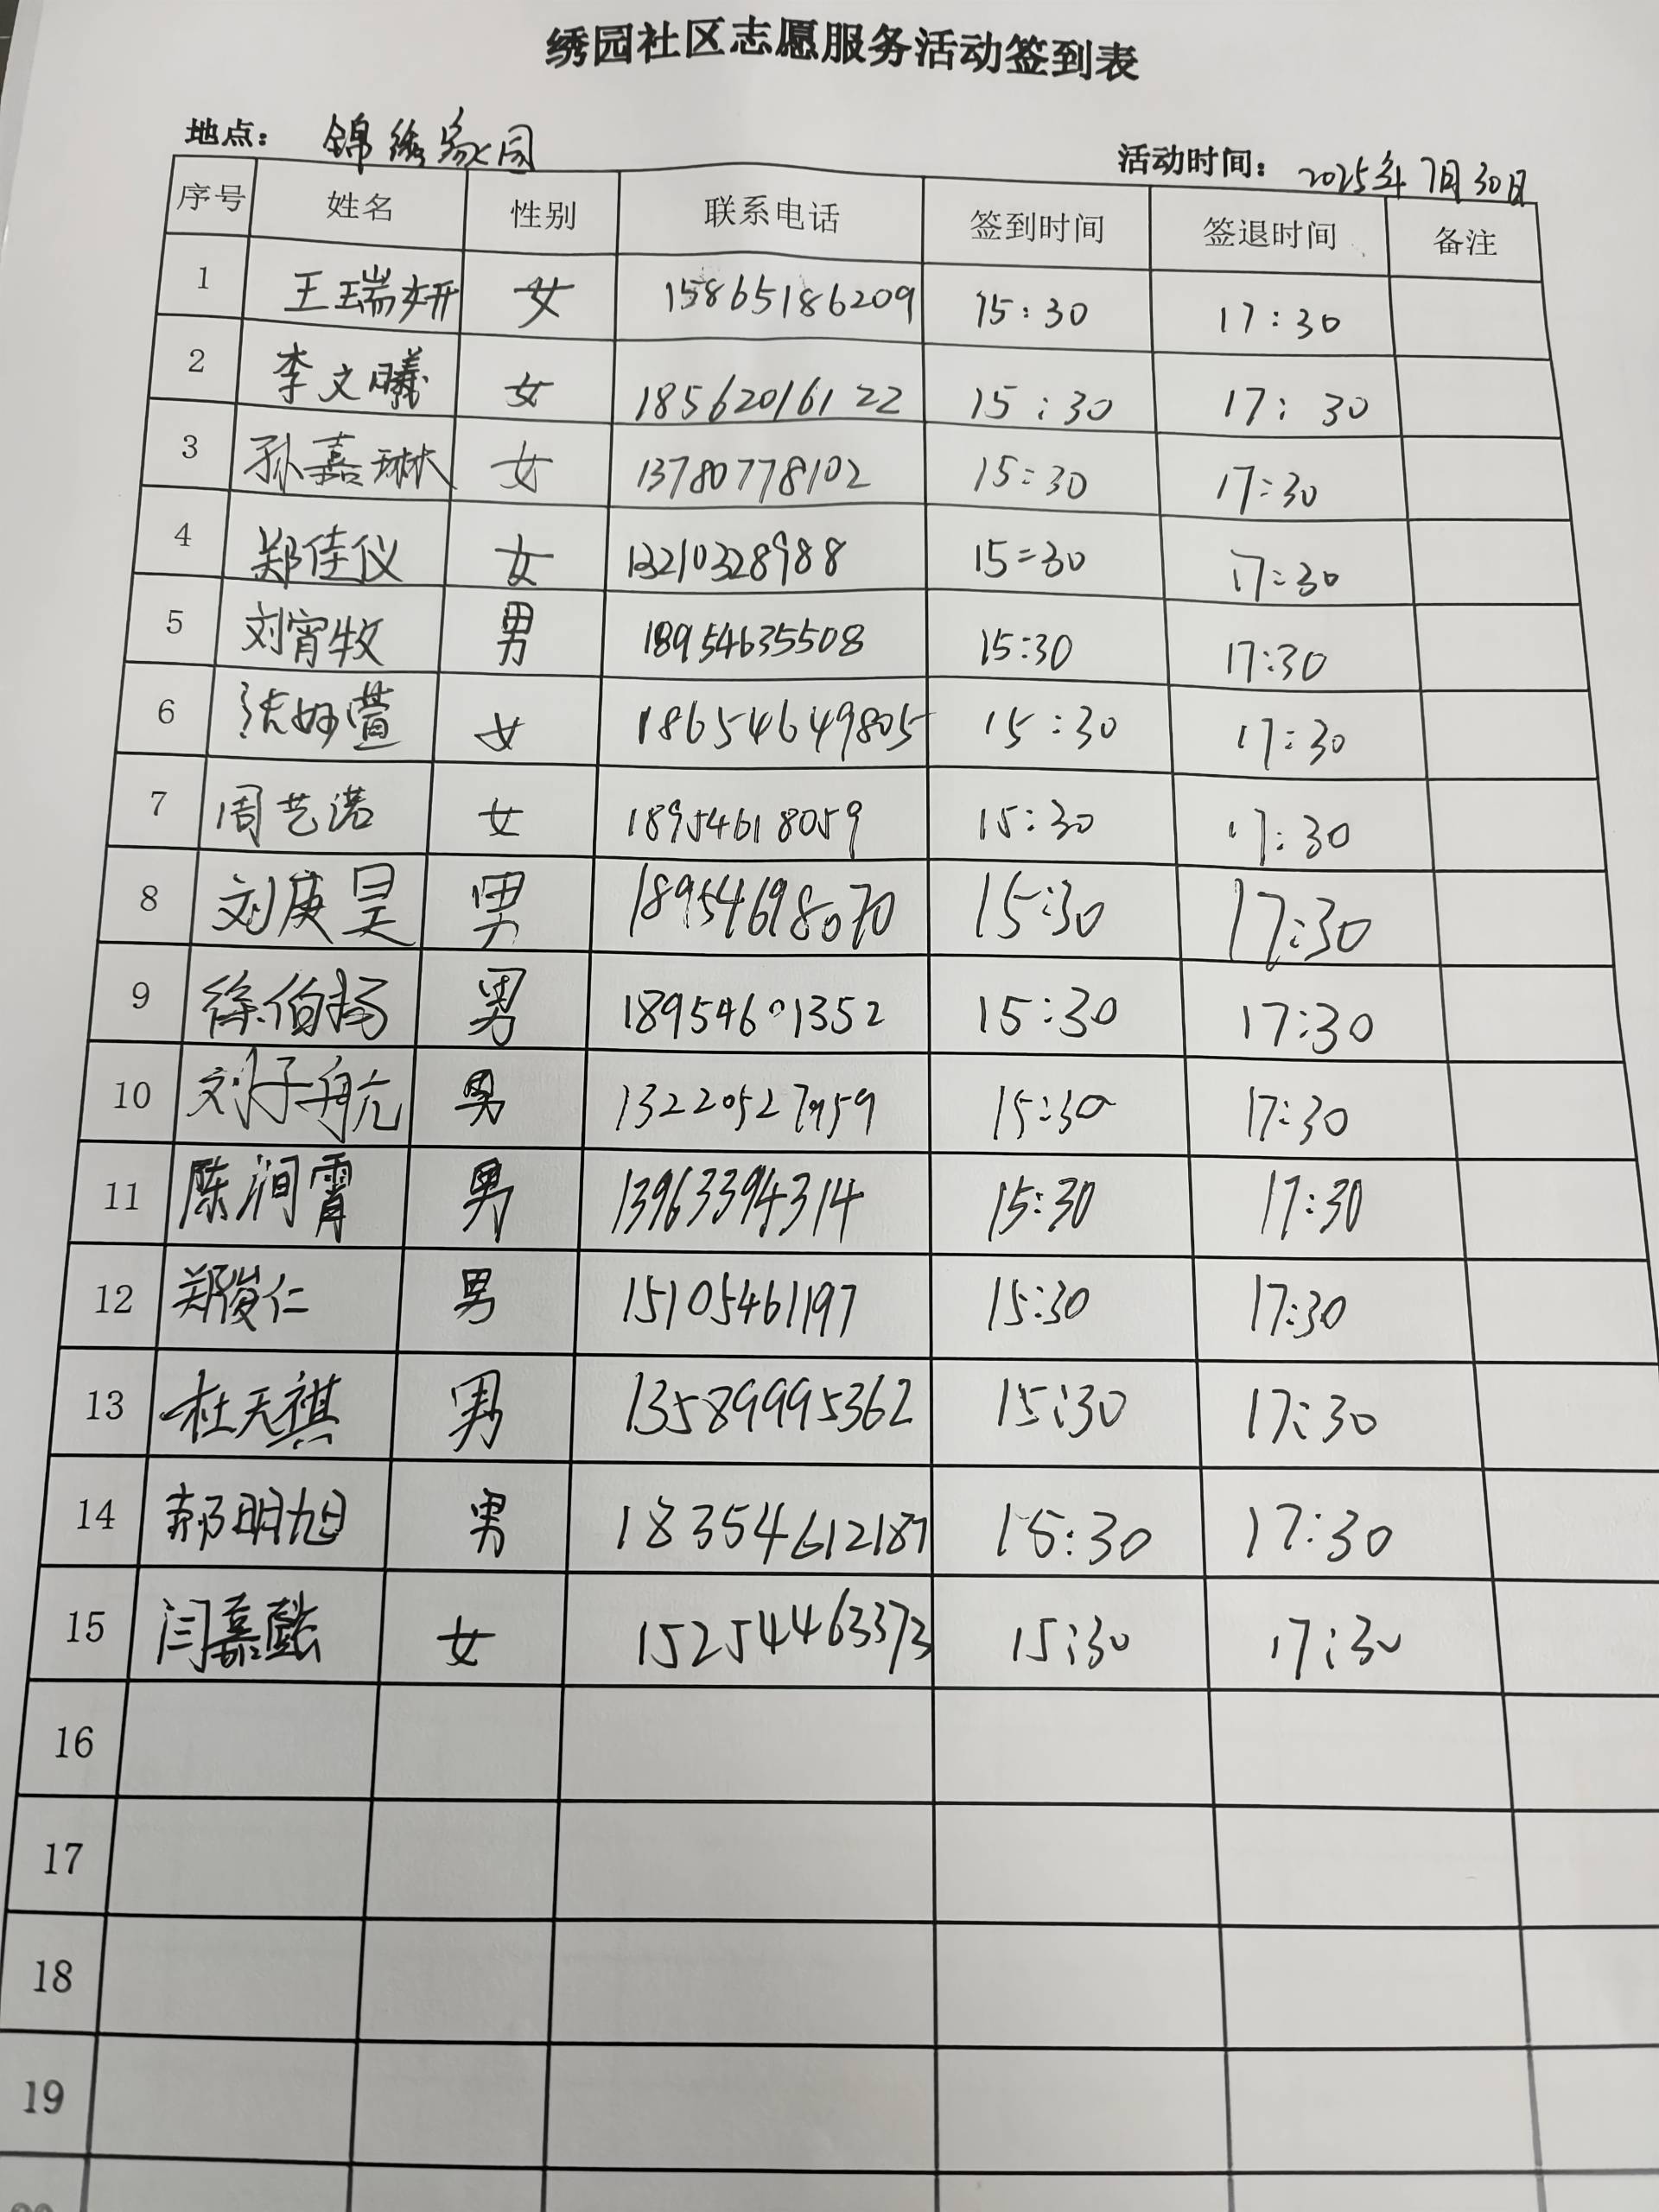 绣园社区志愿服务活动签到表
地点： 锦绣家园 活动时间： 2025年7月30日
序号 姓名 性别 联系电话 签到时间 签退时间 备注
1 王瑞妍 女 15865186209 15:30 17:30
2 李文曦 女 18562016122 15:30 17:30
3 孙嘉琳 女 13780778102 15:30 17:30
4 郑佳仪 女 13210328988 15:30 17:30
5 刘宵牧 男 18954635508 15:30 17:30
6 张妤萱 女 18654649805 15:30 17:30
7 周艺诺 女 18954618059 15:30 17:30
8 刘庚昊 男 18954698070 15:30 17:30
9 徐伯扬 男 18954601352 15:30 17:30
10 刘子航 男 15:30 17:30
11 陈润霄 男 13963394314 15:30 17:30
12 郑俊仁 男 15105461197 15:30 17:30
13 杜天祺 男 13589995362 15:30 17:30
14 郝明旭 男 18354612187 15:30 17:30
15 闫嘉懿 女 15254463373 15:30 17:30
16
17
18
19